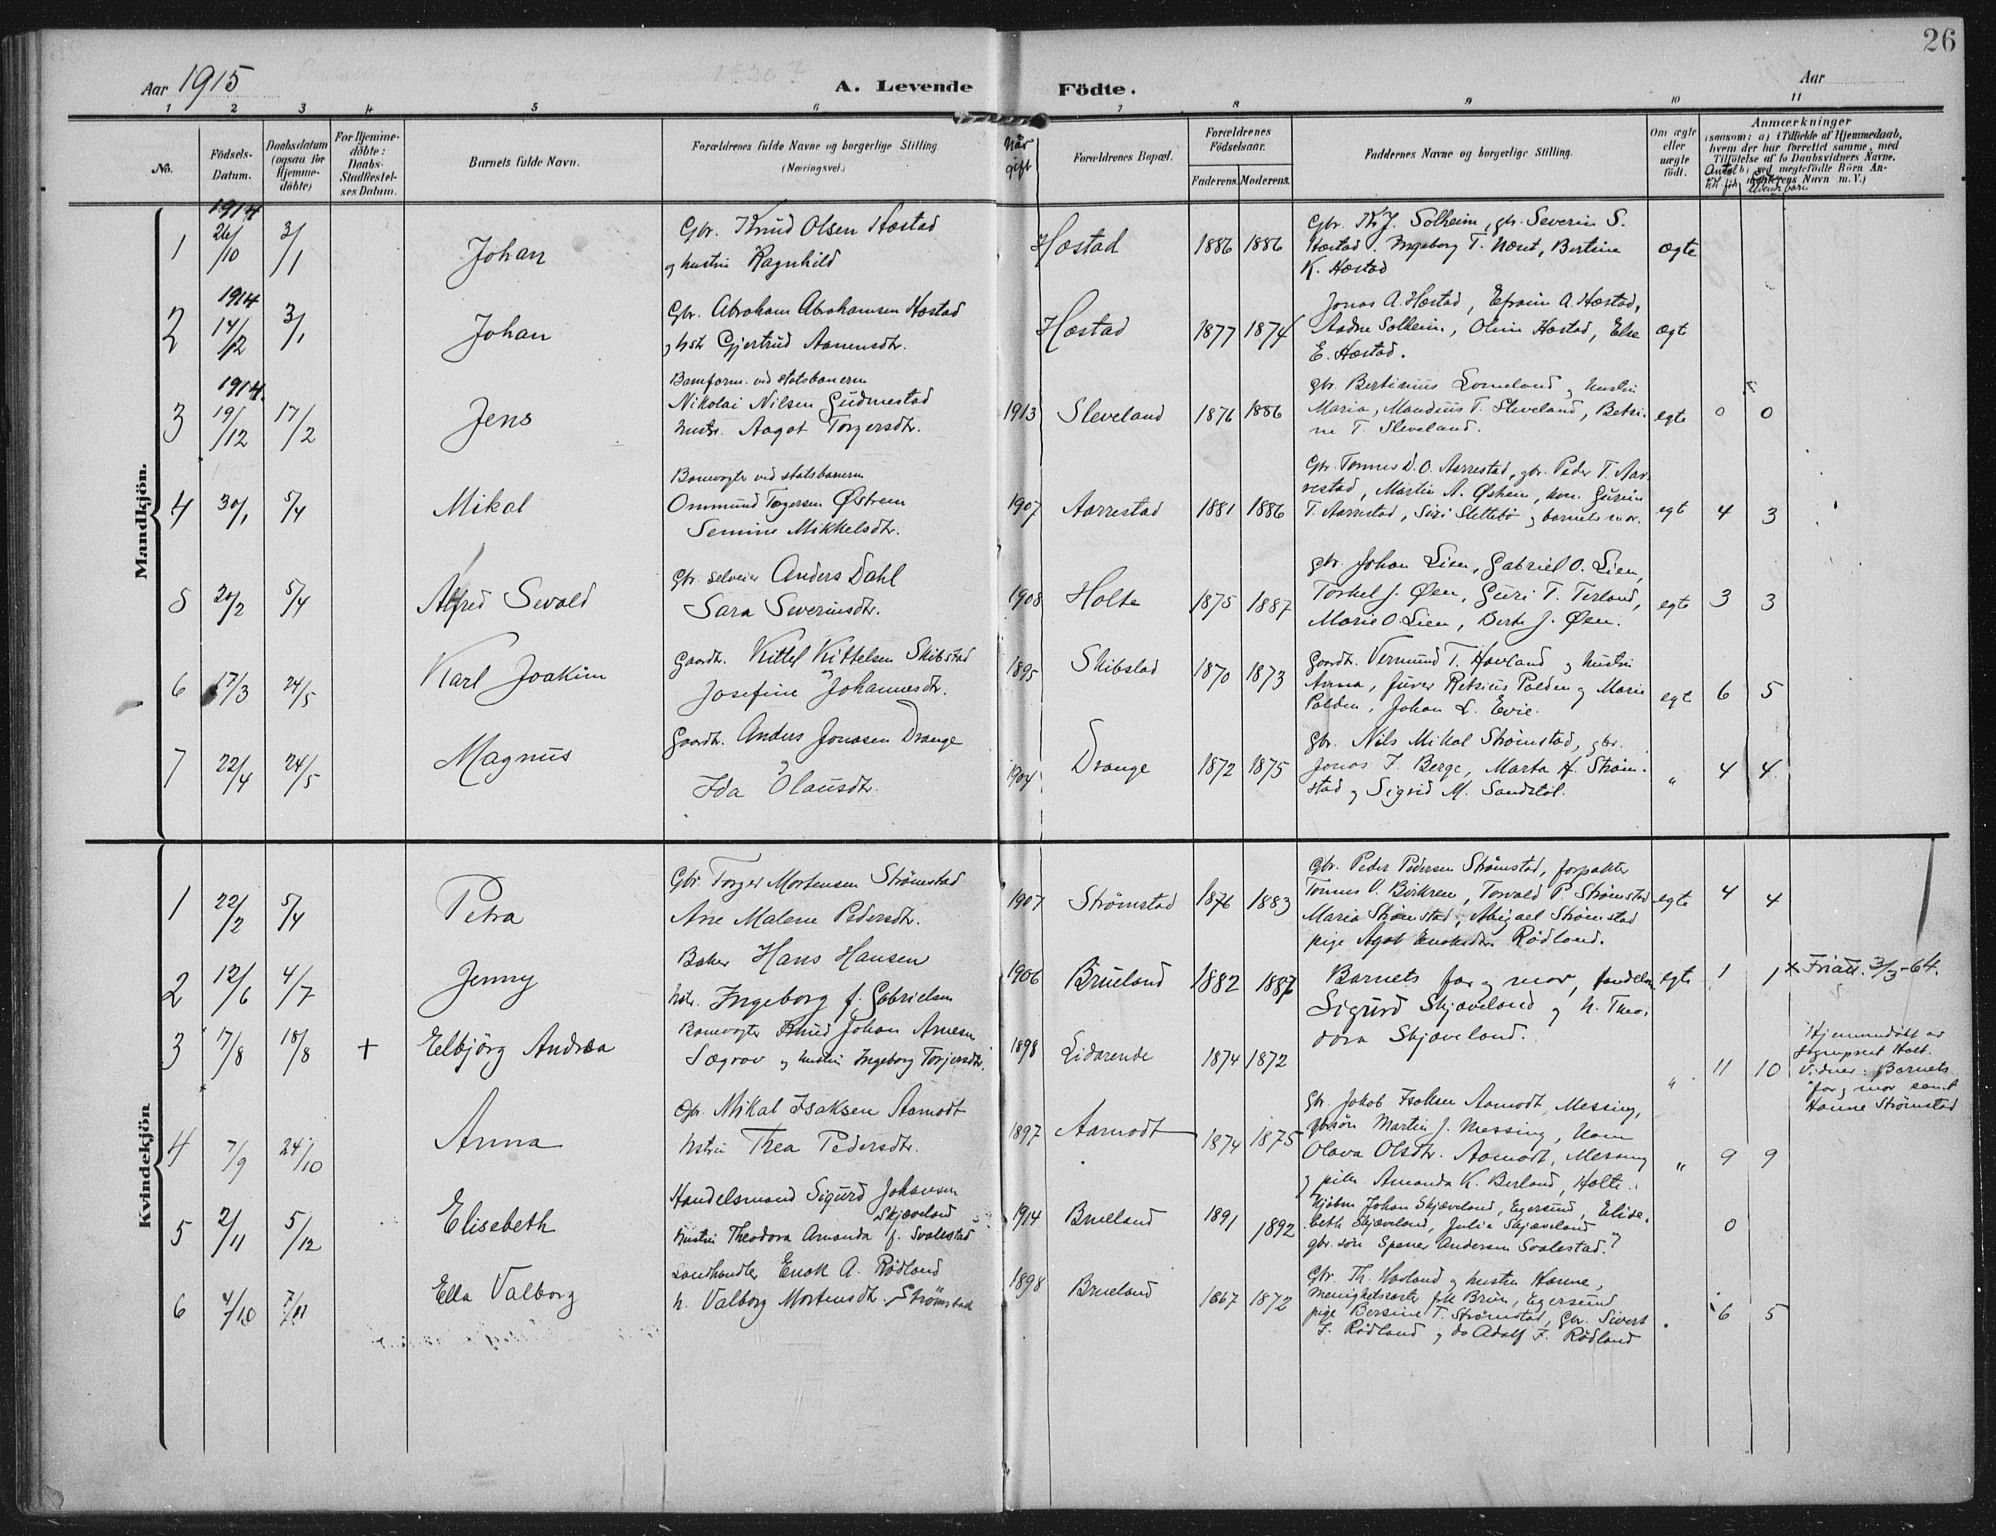 26
Aar 1915
A. Levende Födte.
Aar
1 2 3 4 5 6 7 8 9 10 11
No.
Födsels-Datum.
Daabsdatum (ogsaa for Hjemme-döbte)
For Hjemme-döbte: Daabs-Stadfæstel-ses Datum.
Barnets fulde Navn.
Forældrenes fulde Navne og borgerlige Stilling (Næringsvei.)
Når gift
Forældrenes Bopæl.
Forældrenes Födselsaar.
Faderens. Moderens.
Faddernes Navne og borgerlige Stilling.
Om ægte eller uægte födt.
Anmærkninger
(saasom: a) i Tilfælde af Hjemmedaab,
hvem der har forrettet samme, med
Tilföielse af to Daabsvidners Navne.
Mandkjön.
1 1914 26/10 3/1 Johan
Gbr. Knud Olsen Hæstad
og hustru Ragnhild
Hæstad 1886 1886
Gbr. Th J. Solheim, gbr. Severin S.
Hæstad, Ingeborg T. Næset, Bertine
K. Hæstad
ægte
2 1914 14/12 3/1 Johan
Gbr. Abraham Abrahamsen Hæstad
og hstr Gjertrud Aanensdtr.
Hæstad 1877 1874
Jonas A. Hæstad, Efraim A. Hæstad,
Aadne Solheim, Olini Hæstad, Else
E. Hæstad.
ægt
3 1914 19/12 17/2 Jens
Baneform. ved statsbanerne
Nikolai Nilsen Gudmestad
hustr. Aagot Torgersdtr.
1913 Sleveland 1876 1886
gbr. Bertinius Lomeland og hustru
Maria, Mandius T. Sleveland, Betzi-
ne T. Sleveland.
egte 0 0
4 30/1 5/4 Mikal
Banevogter ved statsbanerne
Ommund Torgersen Østrem
Semine Mikkelsdtr.
1907 Aarrestad 1881 1886
Gbr. Tønnes D. O. Aarrestad, gbr. Peder T. Aar-
restad, Martin A. Øshem, kone Gurine
T. Aarrestad, Siri Slettebø og barnets mor.
egt 4 3
5 20/2 5/4 Alfred Sevald
Gbr. selveier Anders Dahl
Sara Severinsdtr.
1908 Holte 1875 1887
gbr. Johan Lien, Gabriel O. Lien,
Torkel J. Øen, Guri T. Terland,
Marie O. Lien, Berte J. Øen.
egte 3 3
6 17/3 24/5 Karl Joakim
Gaardbr. Kittel Kittelsen Skibstad
Josefine Johannesdtr.
1895 Skibstad 1870 1873
Gaardbr. Vermund T. Hovland og hustru
Anna, Retzius Palden og Marie
Palden, Johan L. Evie.
egt 6 5
7 22/4 24/5 Magnus
Gaardbr. Anders Jonasen Drange
og
Ida Olausdtr.
1904 Drange 1872 1875
Gbr. Nils Mikal Strømstad, gbr.
Jonas J. Berge, Marta H. Strøm-
stad og Sigrid M. Sandstøl.
" 4 4
Kvindekjön
1 22/2 5/4 Petra
Gbr. Torger Mortensen Strømstad
Ane Malene Pedersdtr.
1907 Strømstad 1876 1883
Gbr. Peder Pedersen Strømstad, forpakter
Tønnes O. Birkren, Torvald P. Strømstad
Maria Strømstad, Abigael Strømstad
pige Agot Enoksdtr. Rödland.
egte 4 4
2 12/6 4/7 Jenny
Baker Hans Hansen
hstr. Ingeborg f. Gabrielsen
1906 Brueland 1882 1887
Barnets far og mor, handelsm
Sigurd Skjæveland og h. Theo-
dora Skjæveland.
egte 1 1
x Friatt. 3/3-64.
3 17/8 18/8 + Eelbjörg Andrea
Banevogter Knud Johan Arnesen
Sægrov og hustru Ingeborg Torjersdtr.
1898 Lidarende 1874 1872
" 11 10
Hjemmedöbt av
sognprest Holt.
Vidner: Barnets
far og mor samt
Hanne Strömstad
4 7/9 24/10 Anna
Gbr. Mikal Isaksen Aamodt
hustru Thea Pedersdtr.
1897 Aamodt 1874 1875
Gbr. Jakob Isaksen Aamodt, Messing,
gbrsøn Martin J. Messing, kone
Olava Olsdtr. Aamodt, Messing
og pike Amanda K. Berland, Holte.
" 9 9
5 2/11 5/12 Elisebeth
Handelsmand Sigurd Johansen
Skjæveland
hustru Theodora Amanda f. Svalestad
1914 Brueland 1891 1892
kjøbm. Johan Skjæveland, Egersund, Elise-
beth Skjæveland, Julie Skjæveland
gbr. søn Spener Andersen Svalestad.
" 0
6 4/10 7/11 Ella Valborg
Landhandler Enok A. Rödland
h. Valborg Mortensdtr. Strömstad
1898 Brueland 1867 1872
Gbr. Th. Hovland og hustru Hanne,
menighetssøster frk Bruu, Egersund
pige Bersine T. Strømstad, Gbr. Sivert
I. Rödland og do Adolf F. Rödland
" 6 5